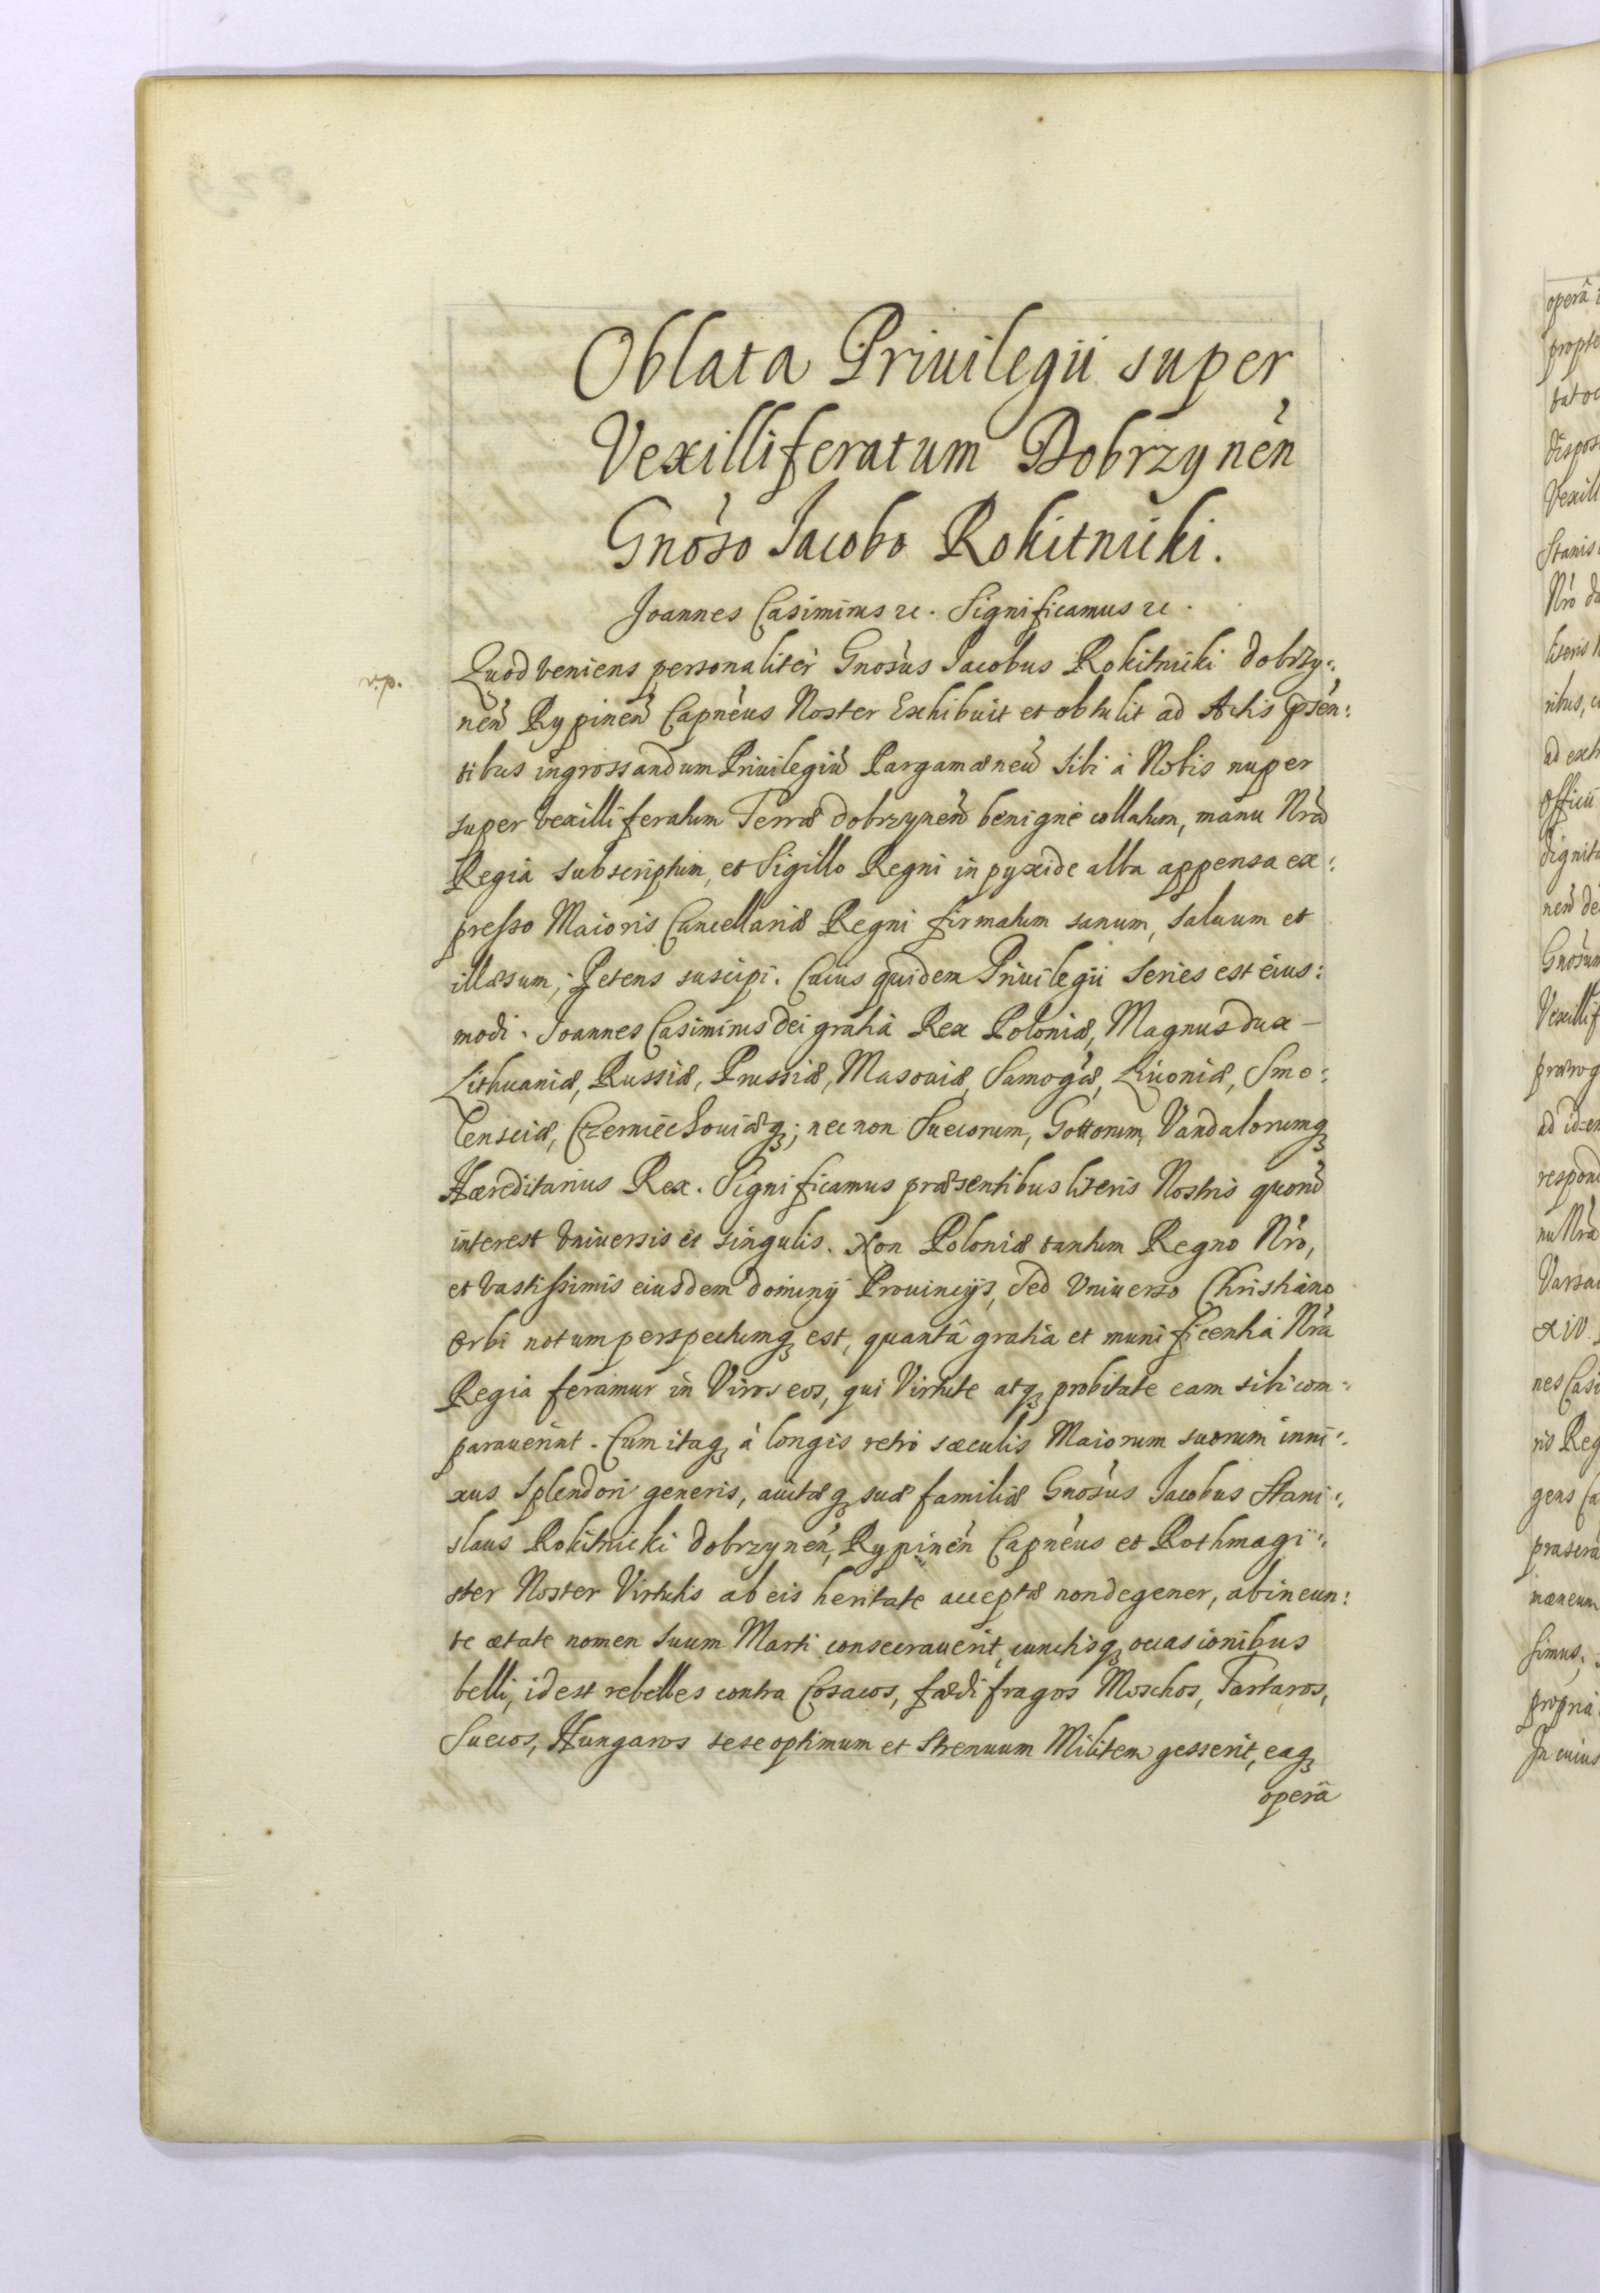 Oblata Priuilegii super
Vexilliferatum Dobrzynēn
Gnoso Jacobo Rokitnicki.
Joannes Casimirus &c. Significamus &c.
v.p.
Quod veniens personaliter Gnosus Jacobus Rokitnicki dobrzy:
nen̄ Rypinen̄ Capneus Noster Exhibuit et obtulit ad Actis psen:
tibus ingrossandum Priuilegiū Pargamæneū sibi à Nobis nuper
super vexilliferatum Terræ dobrzynen̄ benignè collatum, manu Nrā
Regia subscriptum, et Sigillo Regni in pyxide alba appensa ex:
presso Maioris Cancellariæ Regni firmatum sanum, saluum et
illæsum; Petens suscipi. Cuius quidem Priuilegii Series est eius:
modi. Joannes Casimirus dei gratia Rex Poloniæ, Magnus dux –
Lithuaniæ, Russiæ, Prussiæ, Masouiæ, Samogæ, Liuoniæ, Smo:
lensciæ, Czerniechouiæq; necnon Suecorum, Gottorum, Vandalorumq
Hæreditarius Rex. Significamus præsentibus literis Nostris quorū
interest Vniuersis et singulis. Non Poloniæ tantum Regno Nrō,
et vastissimis eiusdem dominij Prouincijs, Sed Vniuerso Christiano
Orbi notum perspectumq est, quantâ gratia et munificentia Nrā
Regia feramur in Viros eos, qui Virtute atq probitate eam sibi com:
parauerint. Cum itaq à longis retrò sæculis Maiorum suorum inni:
xus Splendori generis, auitæq suæ familiæ Gnosus Jacobus Stani:
slaus Rokitnicki dobrzynēn, Rypinēn Capneus et Rothmagi:
ster Noster Virtutis ab eis heritate acceptæ nondegener, ab ineun:
te ætate nomen suum Marti consecrauerit, cunctisq occasionibus
belli, idest rebelles contra Cosacos, fædifragos Moschos, Tartaros,
Suecos, Hungaros sese optimum et strenuum Militem gesserit, eaq
operâ